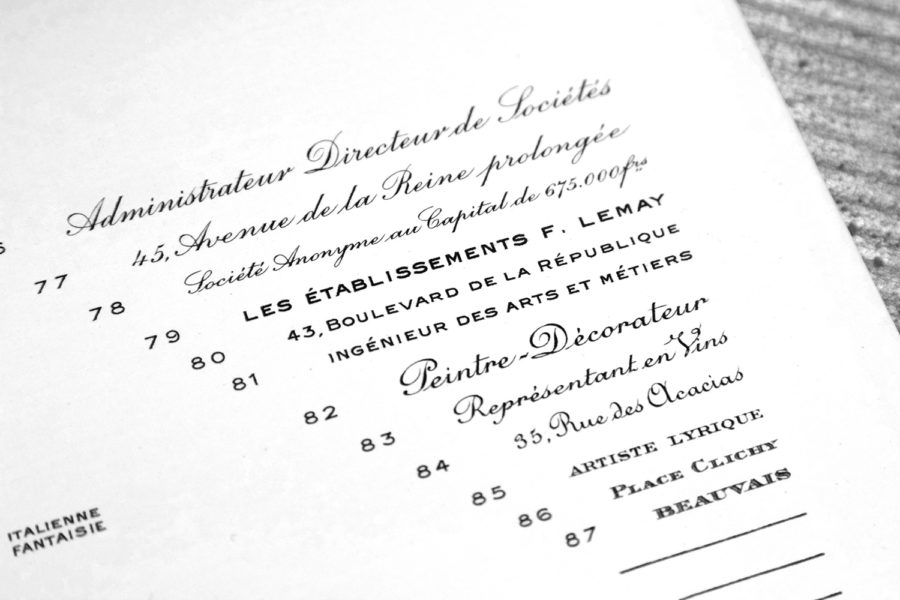 Administrateur Directeur de Sociétés
77 45, Avenue de la Reine prolongée
78 Société Anonyme au Capital de 675.000 frs
79 LES ÉTABLISSEMENTS F. LEMAY
80 43, BOULEVARD DE LA RÉPUBLIQUE
81 INGÉNIEUR DES ARTS ET MÉTIERS
82 Peintre-Décorateur
83 Représentant en Vins
84 35, Rue des Acacias
85 ARTISTE LYRIQUE
86 PLACE CLICHY
87 BEAUVAIS
ITALIENNE
FANTAISIE